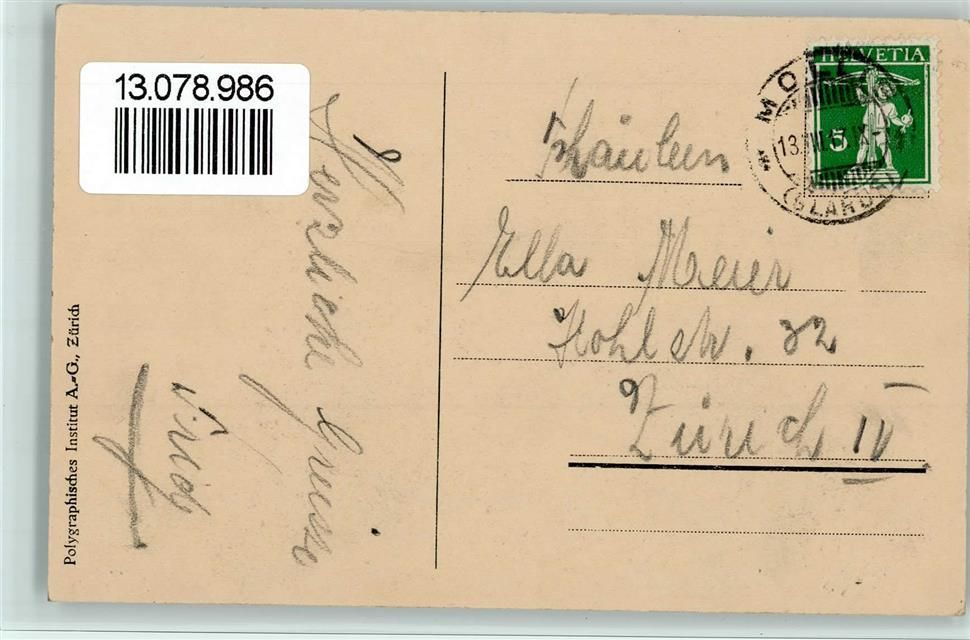 13.078.986
HELVETIA
5
MOLLIS
(GLARUS)
Fräulein
Ella Meier
Kohlstr. 32
Zürich IV
Herzliche Grüsse
Polygraphisches Institut A.-G., Zürich